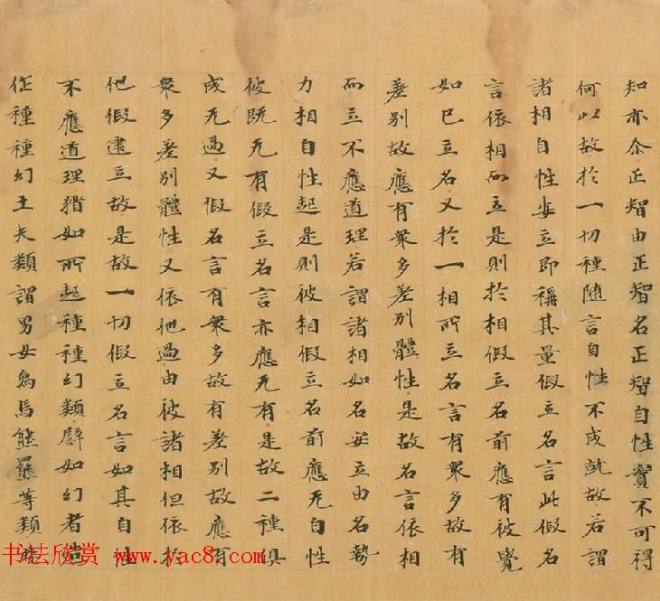 知亦尒正智由正智名正智自性實不可得
何以故於一切種随言自性不成就故若謂
諸相自性安立即稱其量假立名言此假名
言依相而立是則於相假立名前應有彼覺
如已立名又於一相所立名言有衆多故有
差別故應有衆多差別體性是故名言依相
而立不應道理若謂諸相如名安立由名勢
力相自性起是則彼相假立名前應无自性
彼既无有假立名言亦應无有是故二種俱
成无過又假名言有衆多故有差別故應有
衆多差別體性又依他過由彼諸相但依於
他假建立故是故一切假立名言如其自性
不應道理猶如所起種種幻類譬如幻者造
作種種幻士夫類謂男女鳥馬熊羆等類非
书法欣赏 www.yac8.com